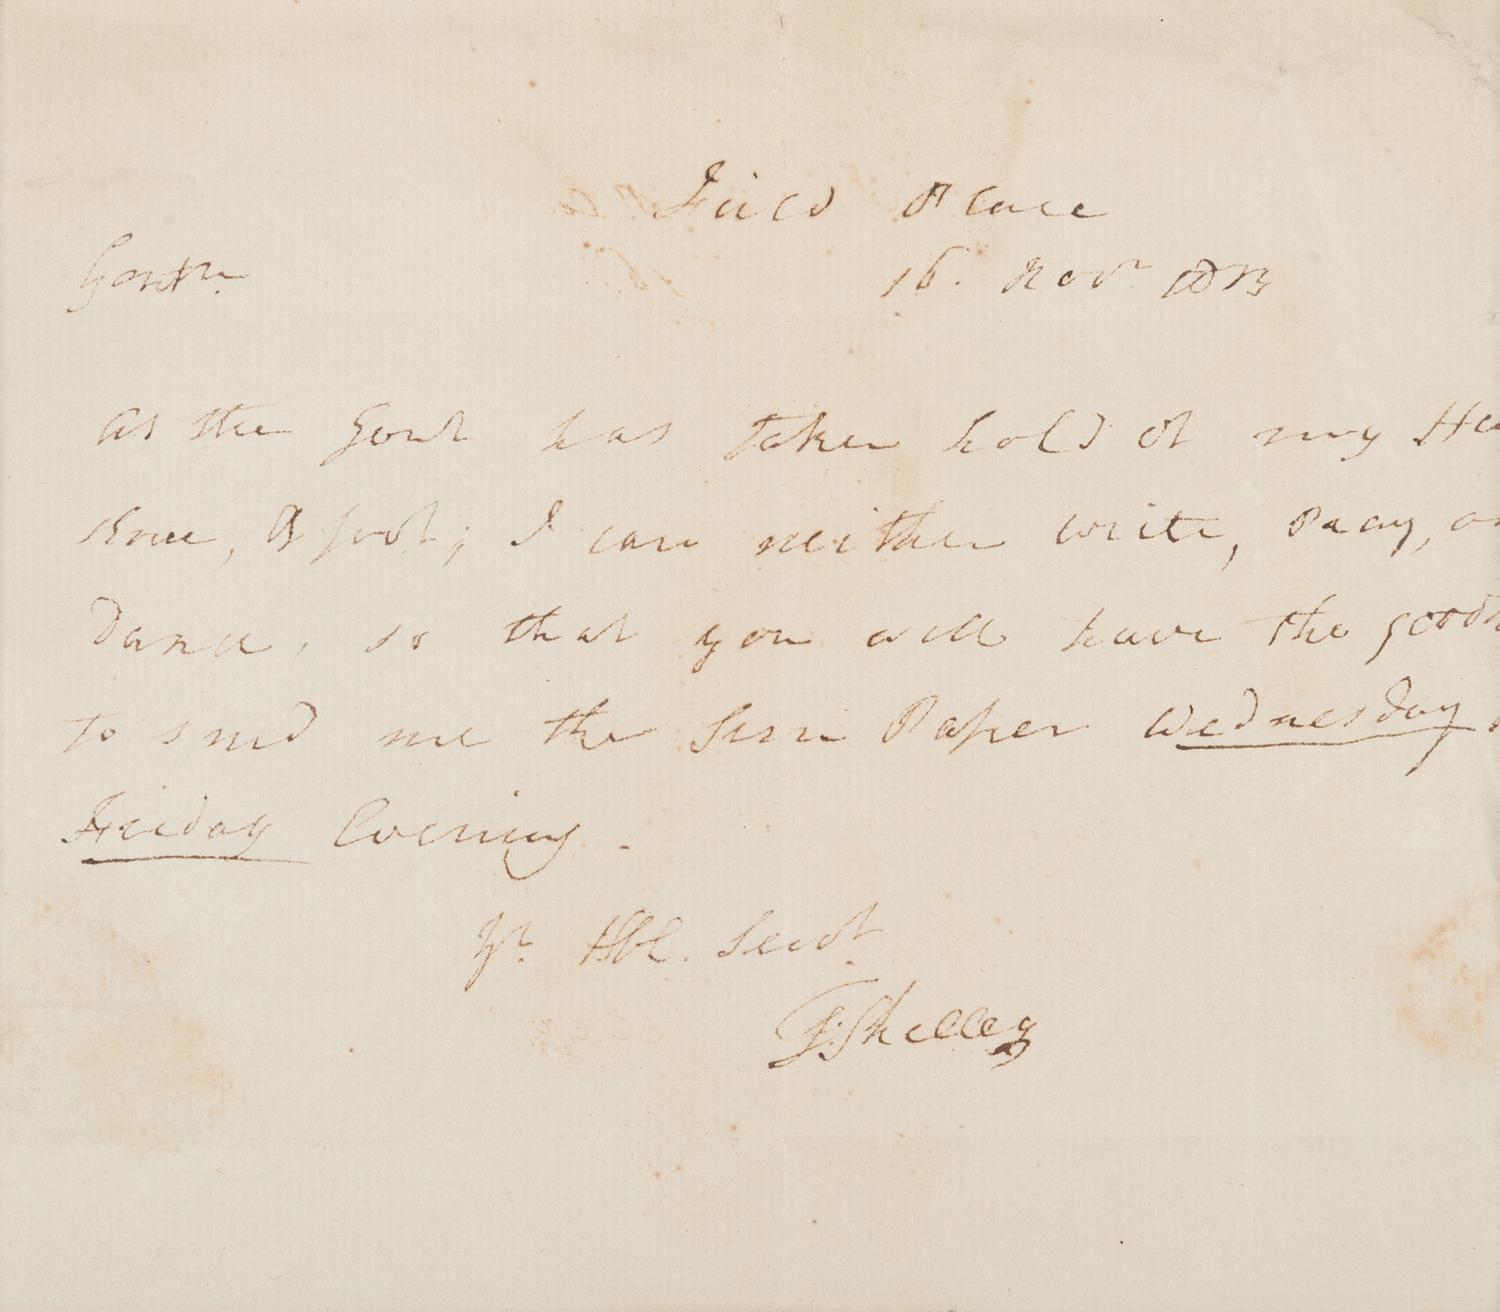 Field Place
Gentn.
16. Novr. 1813
As the Gout has taken hold of my
Knee, & foot; I can neither write, Pray, or
Dance, so that you will have the
to send me the Sun Paper Wednesday
Friday Evening.
Yr. Hble. Servt.
T: Shelley